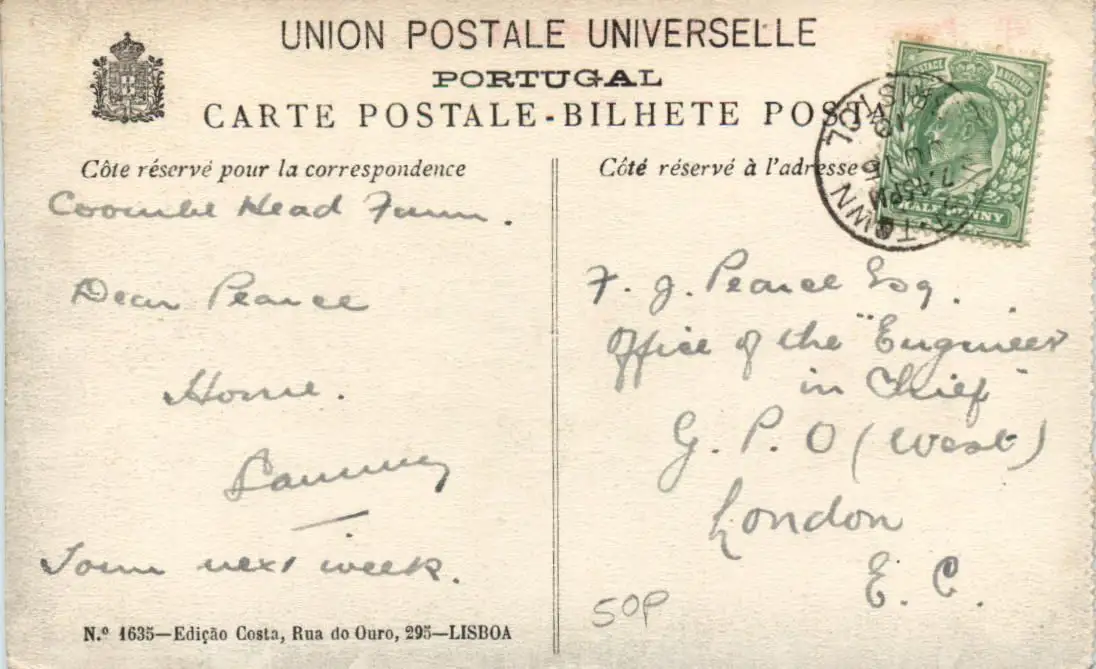 UNION POSTALE UNIVERSELLE
PORTUGAL
CARTE POSTALE-BILHETE POSTAL
Côte réservé pour la correspondence
Coombe Head Farm.
Dear Pearce
Home.
Sammy
Town next week.
N.º 1635—Edição Costa, Rua do Ouro, 295—LISBOA
Côté réservé à l'adresse
F. J. Pearce Esq.
Office of the "Engineer
in Chief"
G. P. O (West)
London
E. C.
50P
POSTAGE
HALF PENNY
BRISTOL
7.45PM